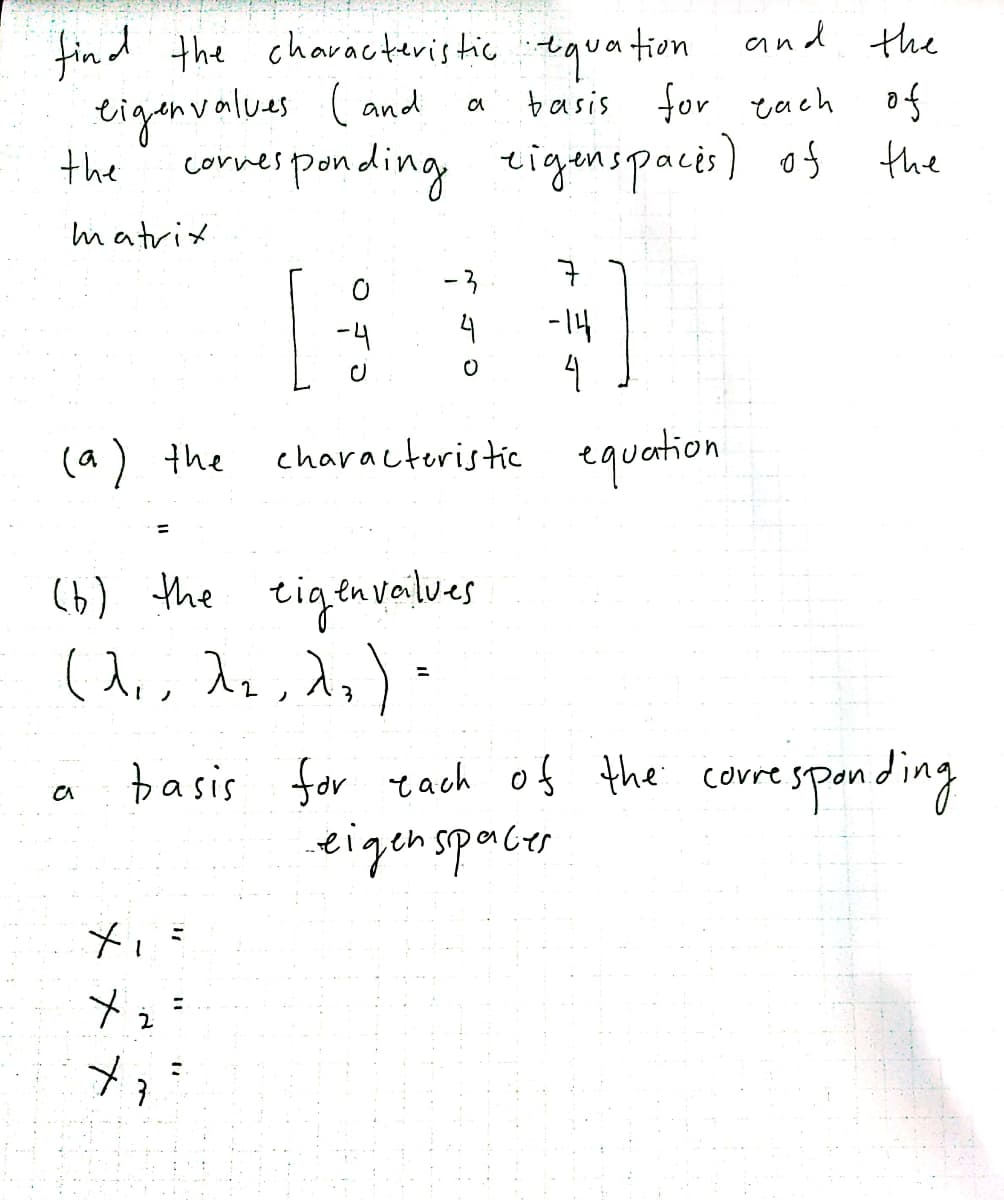 find the characteristic equation and the
eigenvalues (and a basis for each of
the corresponding eigenspaces) of the
matrix
0 -3 7
-4 4 -14
0 0 4
(a) the characteristic equation
=
(b) the eigenvalues
(λ1, λ2, λ3) =
a basis for each of the corresponding
eigenspaces
x1 =
x2 =
x3 =